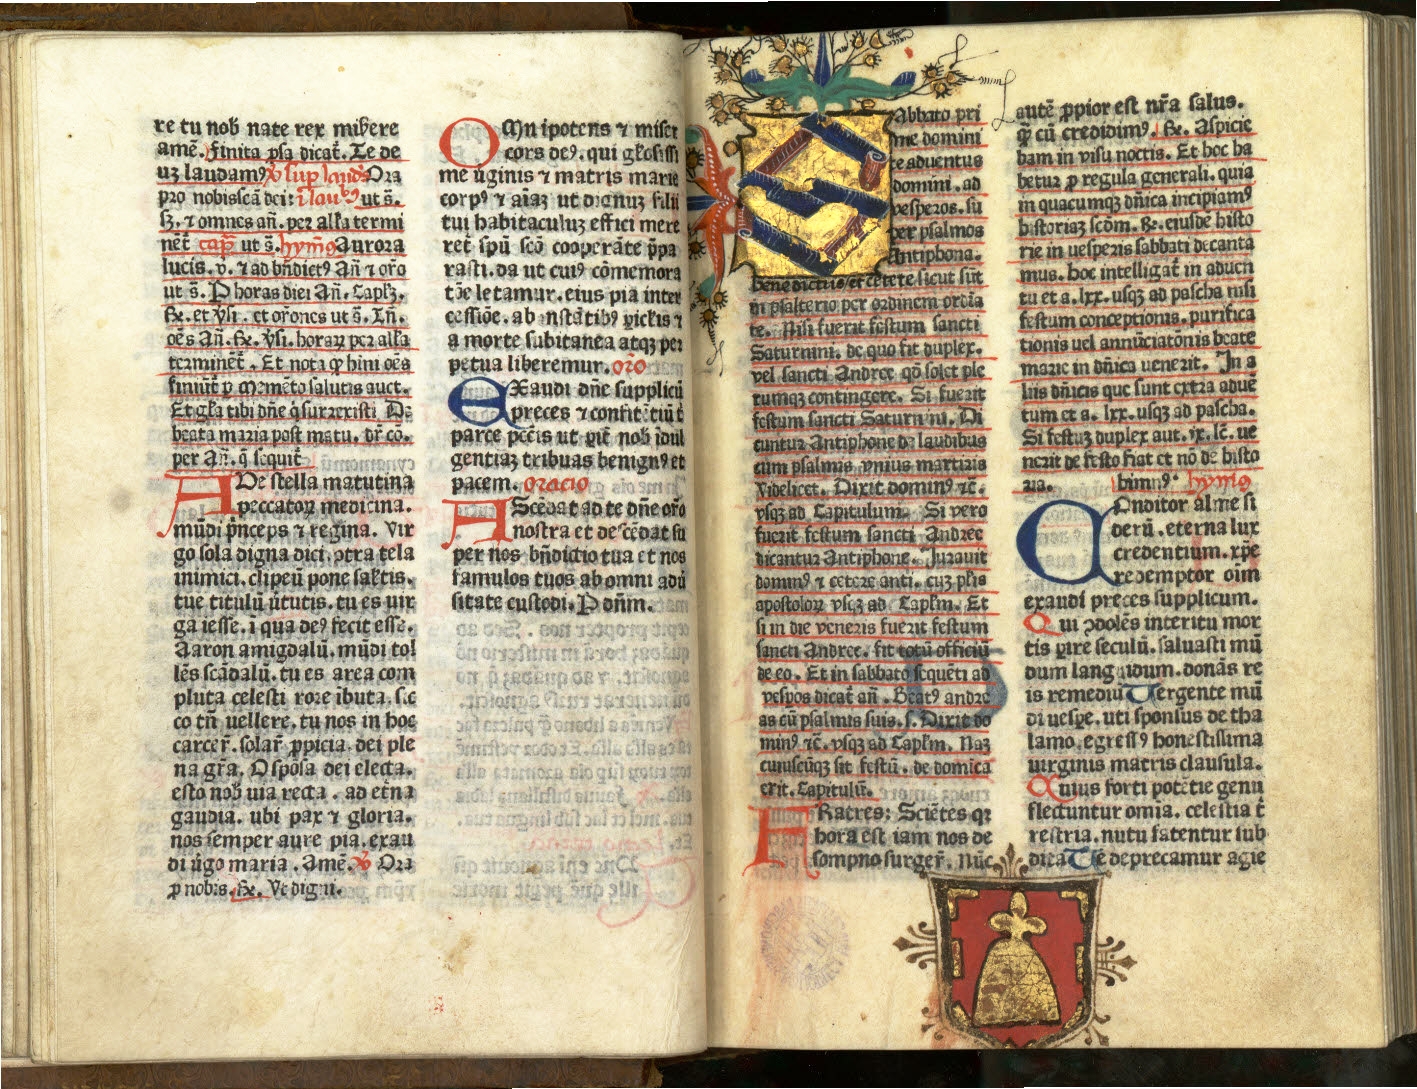 re tu nob̄ nate rex mis̄ere
amē. finita p̄sa dicat̄. Te de
uꝫ laudamꝰ ℣ sup laud̄ Ora
pro nobis scā dei: ī laubꝰ ut s̄.
⁊ omnes an̄. per all'a termi
nēt̄ cap̄ ut s̄. hymꝰ Aurora
lucis. v̄. ⁊ ad bn̄dictꝰ An̄ ⁊ or̄o
ut s̄. P horas diei An̄. Capl'ꝫ.
℟. et ℣li. et or̄ones ut s̄. In̄.
oēs An̄. ℟. ℣li. horaꝝ per all'a
terminēt̄. Et nota ꝙ hīni oēs
finiūt̄ p̱ memēto salutis auct.
Et gl'a tibi dn̄e q̇ surrexisti. De
beata maria post matu. dr̄ cō.
per An̄. q̄ sequit̄
ADe stella matutina
peccatoꝝ medicina.
mūdi p̄nceps ⁊ regina. Vir
go sola digna dici. ꝯtra tela
inimici. clipeū pone sal'tis.
tue titulū v̇tutis. tu es vir
ga iesse. ī qua deꝰ fecit esse.
Aaron amigdalū. mūdi tol
lēs scādalū. tu es area com
pluta celesti rore ībuta. sic
co tn̄ uellere. tu nos in hoc
carcer̄. solar̄ ꝓpicia. dei ple
na gr̄a. O spōsa dei electa.
esto nob̄ uia recta. ad etn̄a
gaudia. ubi pax ⁊ gloria.
nos semper aure pia. exau
di v̇go maria. Amē. ℣ Ora
ꝓ nobis. ℟. Vt digni.
OMnipotens ⁊ miser
cors deꝰ. qui gl'osissi
me v̇ginis ⁊ matris marie
corpꝰ ⁊ aīaꝫ ut dignuꝫ filii
tui habitaculuꝫ effici mere
ret̄ spū scō cooperāte p̄pa
rasti. da ut cuiꝰ cōmemora
tōe letamur. eius pia inter
cessiōe. ab īnstātibꝰ pic'lis ⁊
a morte subitanea atqꝫ per
petua liberemur. or̄o
EXaudi dn̄e supplicū
preces ⁊ confit̄ētiū t̄
parce pcc̄is ut pīt̄ nob̄ idul
gentiaꝫ tribuas benignꝰ et
pacem. oracio
AScēdat ad te dn̄e or̄o
nostra et descēdat su
per nos bn̄dictio tua et nos
famulos tuos ab omni adv̇
sitate custodi. P dn̄m.
Sabbato pri
me domini
te aduentus
domini. ad
vesperos. su
per psalmos
Antiphona.
benedictus et cetere sicut sūt
in psalterio per ordinem ordīa
te. Nisi fuerit festum sancti
Saturnini. de quo fit duplex.
vel sancti Andree qd̄ solet ple
rumqꝫ contingere. Si fuerit
festum sancti Saturnini. Di
cuntur Antiphone de laudibus
cum psalmis vnius martiris
Videlicet. Dixit dominꝰ ⁊c̄.
vsqꝫ ad Capitulum. Si vero
fuerit festum sancti Andree
dicantur Antiphone. Jurauit
dominꝰ ⁊ cetere anti. cuꝫ pl'is
apostoloꝝ vsqꝫ ad Capl'm. Et
si in die veneris fuerit festum
sancti Andree. fit totū officiū
de eo. Et in sabbato sequēti ad
vesp̱os dicat̄ an̄. Beatꝰ andre
as cū psalmis suis. s. Dixit do
minꝰ ⁊c̄. vsqꝫ ad Capl'm. Naꝫ
cuiuscūqꝫ sit festū. de domica
erit. Capitulū.
FRatres: Sciētes qꝛ
hora est iam nos de
sompno surger̄. Nūc
autē ꝓpior est nr̄a salus.
q̄ cū credidimꝰ. ℟. Aspicie
bam in visu noctis. Et hoc ha
betur p̱ regula generali. quia
in quacumqꝫ dn̄ica incipiamꝰ
historiaꝫ scd̄m. ℟. eiusdē histo
rie in vesperis sabbati decanta
mus. hoc intelligat̄ in aduen
tu et a. lxx. usqꝫ ad pascha nisi
festum conceptionis. purifica
tionis uel annūciatōnis beate
marie in dn̄ica uenerit. In a
liis dn̄icis que sunt extra aduē
tum et a. lxx. usqꝫ ad pascha.
Si festuꝫ duplex aut. ix. lc̄. ue
nerit de festo fiat et nō de histo
ria. himꝰ hymꝰ
COnditor alme si
derū. eterna lux
credentium. xp̄e
redemptor oīm
exaudi preces supplicum.
Qui ꝯdolēs interitu mor
tis p̱ire seculū. saluasti mū
dum languidum. donās re
is remediū Vergente mū
di uesp̱e. uti sponsus de tha
lamo. egressꝰ honestissima
uirginis matris clausula.
Cuius forti potētie genu
flectuntur omīa. celestia t̄
restria. nutu fatentur sub
dita Te deprecamur agie